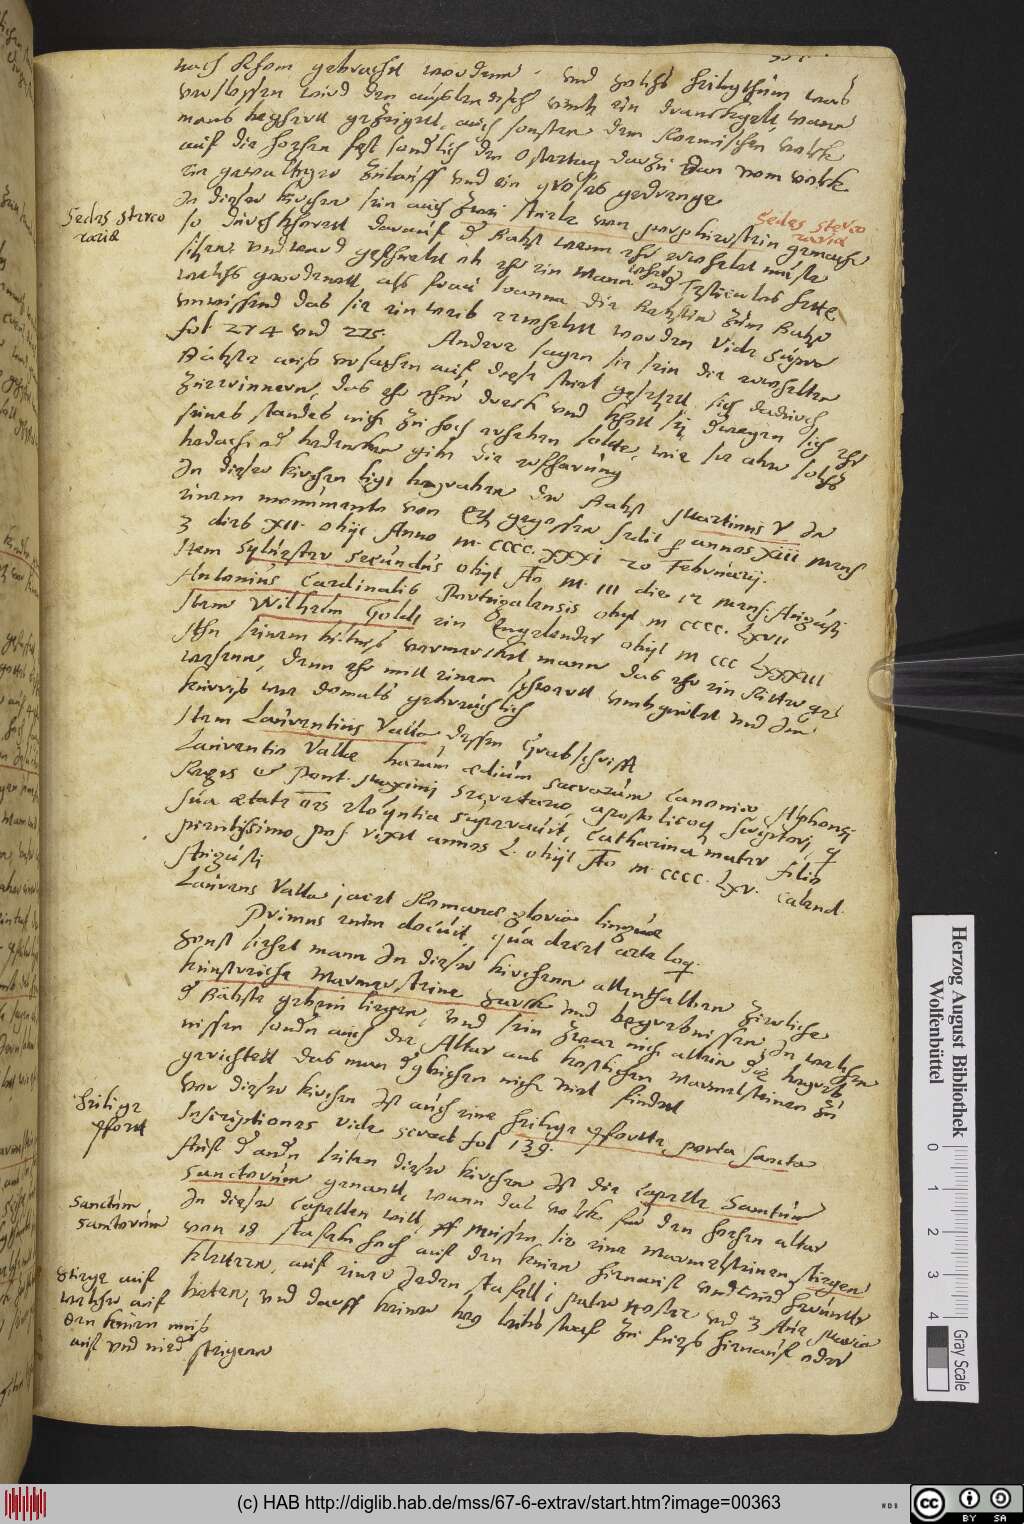 nach Rhom gebracht worden. und solchs heiligthum wardt
verschlossen wird den außlendisch umb ein dranckgelt wann
mans begehrett gezeigett, auch sonsten dem Roemischen volck
auf die hohen fest sonderlich den Ostertag darzu dan vom volck
ein gewaltiger zulauff und ein großes gedrenge
In dieser kirchen sein auch zwei stuele von porphirstein gemacht
so durchlhoerett darauf der Babst wenn ehr erwehlet muste
sitzen und ward gefhuelet ob ehr ein Mann oder testiculos hette
welchs gewonett als frau Joanna die Babstin zum Babst
unwissend das sie ein weib erwehlett worden vide supra
fol 274 und 275. Andere sagen sie sein die erwehlten
Bäbste auß ursachen auf diese stuel gesetzett sich dadurch
zuerinnern, das ehr ihm dreck und khott sitz deswegen sich ehr
seines standes nicht zu hoch erheben solte, wie sie aber solchs
bedacht oder bedencken gibt die erfharung
In dieser kirchen ligt begraben der Babst Martinus V in
einem monumento von Ertz gegossen sedit p annos XIII mens
3 dies XII. obijt Anno M. CCCC. XXXI 20 Februarij.
Item Sylvester secundus obijt Ao M. III die 12 mens: Augusti
Antonius Cardinalis Portugalensis obijt M CCCC. LXVII
Item Wilhelm Goldt ein Engelender obijt M CCC LXXXIII
Ahn seinem bildniß vermercket mann das ehr ein Ritter ge
wesenn, dann ehr mitt einem schwertt umbgurtet und dem
kurriß wie domals gebreuchlich
Item Laurentius Valla dessen Grabschrifft
Laurentio Vallae harum aedium sacrarum Canonico Alphonsi
Regis et Pont. Maximi secretario, apostolicoq scriptori, q
sua aetate oes eloquentia superavit, Catharina mater filio
pientissimo pos. vixit annos L. obijt Ao M. CCCC. LXV. Calend.
Augusti
Laurens Valla jacet Romanae gloria linguae
Primus enim docuit, qua decet arte loq.
Sonst siehet mann in dieser kirchenn allenthalben zierliche
kunstreiche Marmersteine werck und begrebnissen, in welchen
der Bäbste gebein liegen, und sein zwar nich allein die begreb
nissen sondern auch die Altar aus kostlichen Marmelsteinen zu
gerichtett das man dergleichen nicht viel findet
Vor dieser kirchen ist auch eine heilige pfortte, porta sancta
Inscriptiones vide Seradt fol 139.
Auf der andern seiten dieser kirchen ist die Capella Sanctum
Sanctorum genantt, wann das volck fur den hohen altar
in dieser Capellen will, mussen sie eine Marmelsteinen stiegen
von 28 staffeln hoch auf den knien hienauf und wied herunter
klettern, auf einer jeden staffell 1 pater noster und 3 Ave Maria
beten, und darff keiner beÿ leibs straf zu fueß hienauf oder
Sedes sterco
rariae
Sedes sterco
rariae
heilige
pfort
Sanctum
Sanctorum
Stiege auf
welcher auf
den knien muß
auf und nied steigen
Herzog August Bibliothek
Wolfenbüttel
0 1 2 3 4
Gray Scale
(c) HAB http://diglib.hab.de/mss/67-6-extrav/start.htm?image=00363
WDB
cc BY SA